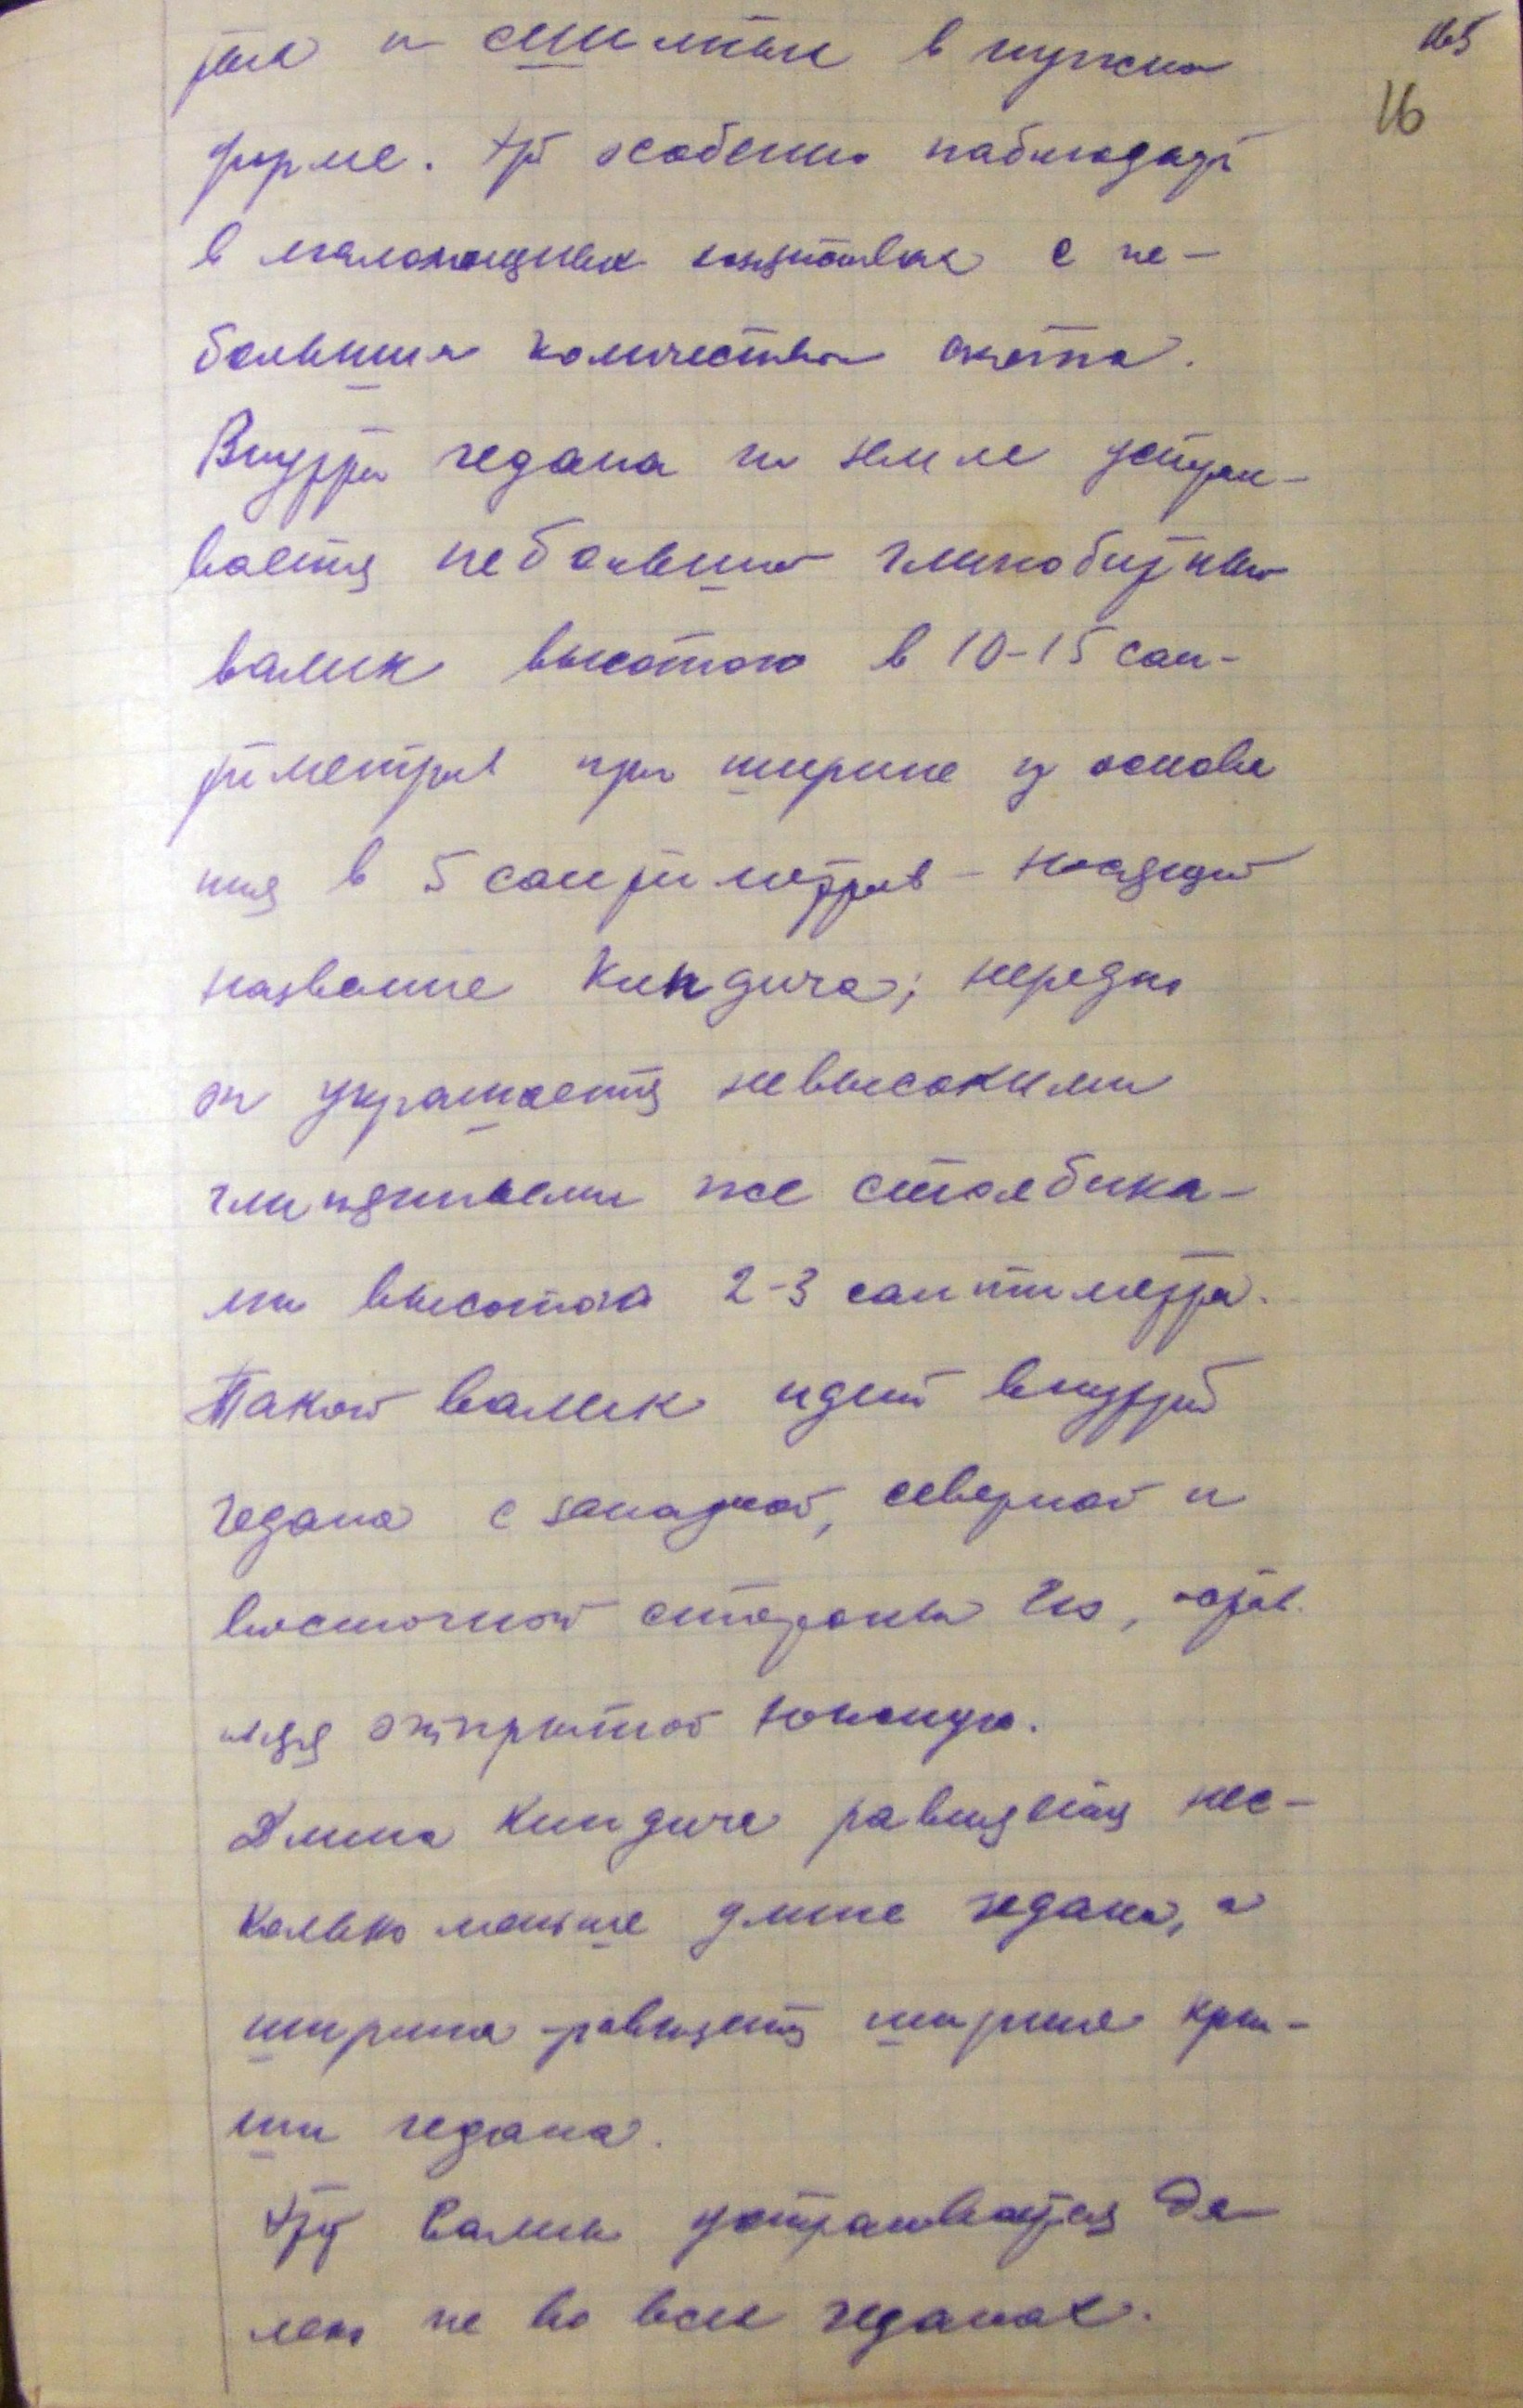 165
16
так и сшиты в нужно
форме. Это особенно наблюдается
в маломощных хозяйствах с не-
большим количеством скота.
Внутри чедана на земле устраи-
вается небольшой глинобитный
валик высотою в 10-15 сан-
тиметров при ширине у основа
ния в 5 сантиметров - носящий
название Киндича; нередко
он украшается невысокими
глиняными же столбика-
ми высотою 2-3 сантиметра.
Такой валик идет внутри
чедана с западной, северной и
восточной стороны его, остав
ляя открытой южную.
Длина Киндича равняется нес-
колько меньше длине чедана, а
ширина равняется ширине кры-
ши чедана.
Этот валик устраивается да-
леко не во всех чеданах.